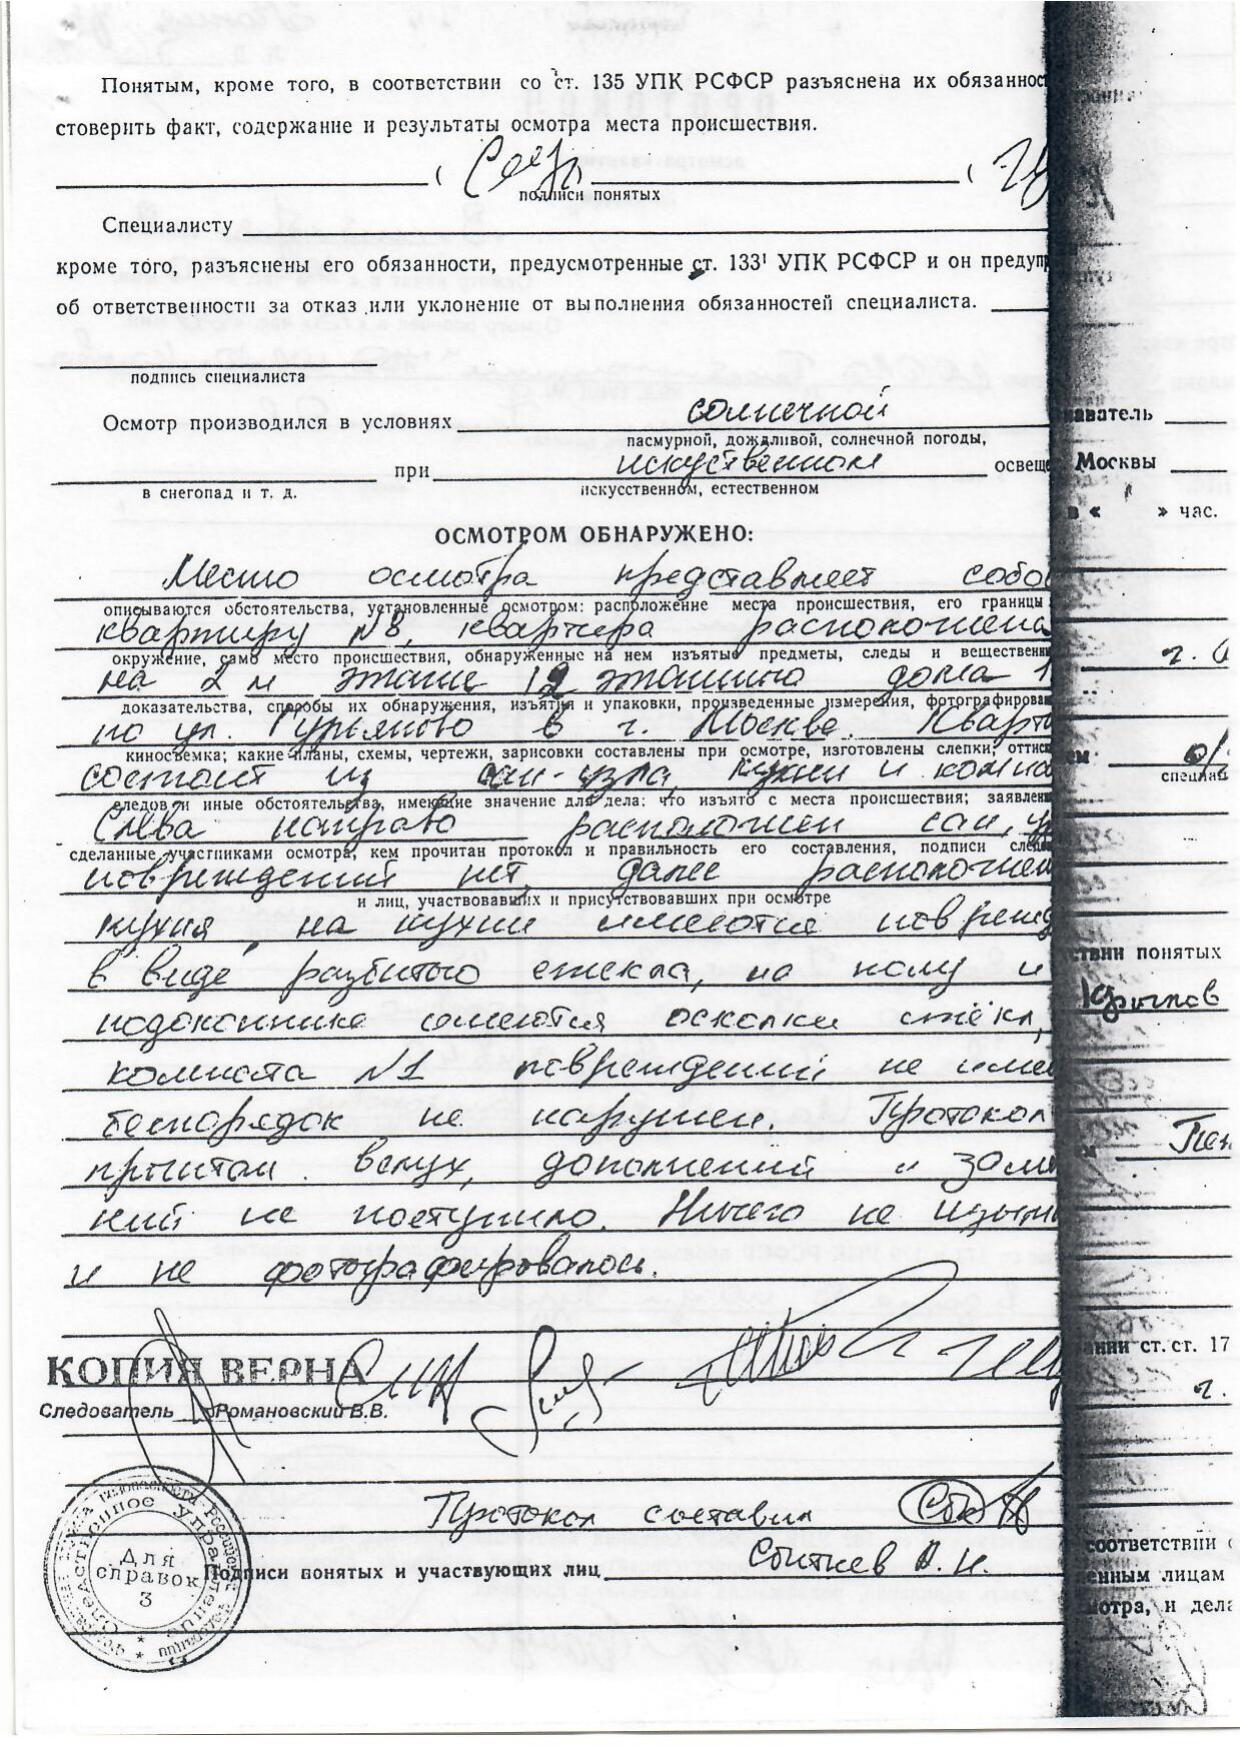 Понятым, кроме того, в соответствии со ст. 135 УПК РСФСР разъяснена их обязаннос
стоверить факт, содержание и результаты осмотра места происшествия.
подписи понятых
Специалисту
кроме того, разъяснены его обязанности, предусмотренные ст. 133¹ УПК РСФСР и он предуп
об ответственности за отказ или уклонение от выполнения обязанностей специалиста.
подпись специалиста
Осмотр производился в условиях солнечной
пасмурной, дождливой, солнечной погоды,
при искуственном освеще
в снегопад и т. д. искусственном, естественном
ОСМОТРОМ ОБНАРУЖЕНО:
Место осмотра представляет собо
описываются обстоятельства, установленные осмотром: расположение места происшествия, его границы
квартиру №8, квартира расположена
окружение, само место происшествия, обнаруженные на нем изъятые предметы, следы и вещественн
на 2м этаже 12 этажного дома 1
доказательства, способы их обнаружения, изъятия и упаковки, произведенные измерения, фотографирован
по ул. Гурьяново в г. Москве. Кварти
киносъемка; какие планы, схемы, чертежи, зарисовки составлены при осмотре, изготовлены слепки; оттис
состоит из сан-узла, кухни и комна
следов и иные обстоятельства, имеющие значение для дела: что изъято с места происшествия; заявлен
Слева направо расположен сан, уз
сделанные участниками осмотра, кем прочитан протокол и правильность его составления, подписи следо
повреждений нет, далее расположен
и лиц, участвовавших и присутствовавших при осмотре
кухня, на кухни имеются поврежд
в виде разбитого стекла, на полу и
подоконнике имеются осколки стёкл,
комната №1 повреждений не име
беспорядок не нарушен. Протокол
прочитан вслух, дополнений и заме
ний не поступило. Ничего не изыма
и не фотографировалось.
КОПИЯ ВЕРНА
Следователь Романовский В.В.
Протокол составил
Подписи понятых и участвующих лиц Сбитнев А. Н.
Следственное управление
Для
справок
3
наватель
Москвы
в « » час.
г.
специал
ствии понятых
ании ст. ст. 17
г.
соответствии
енным лицам
мотра, и дела